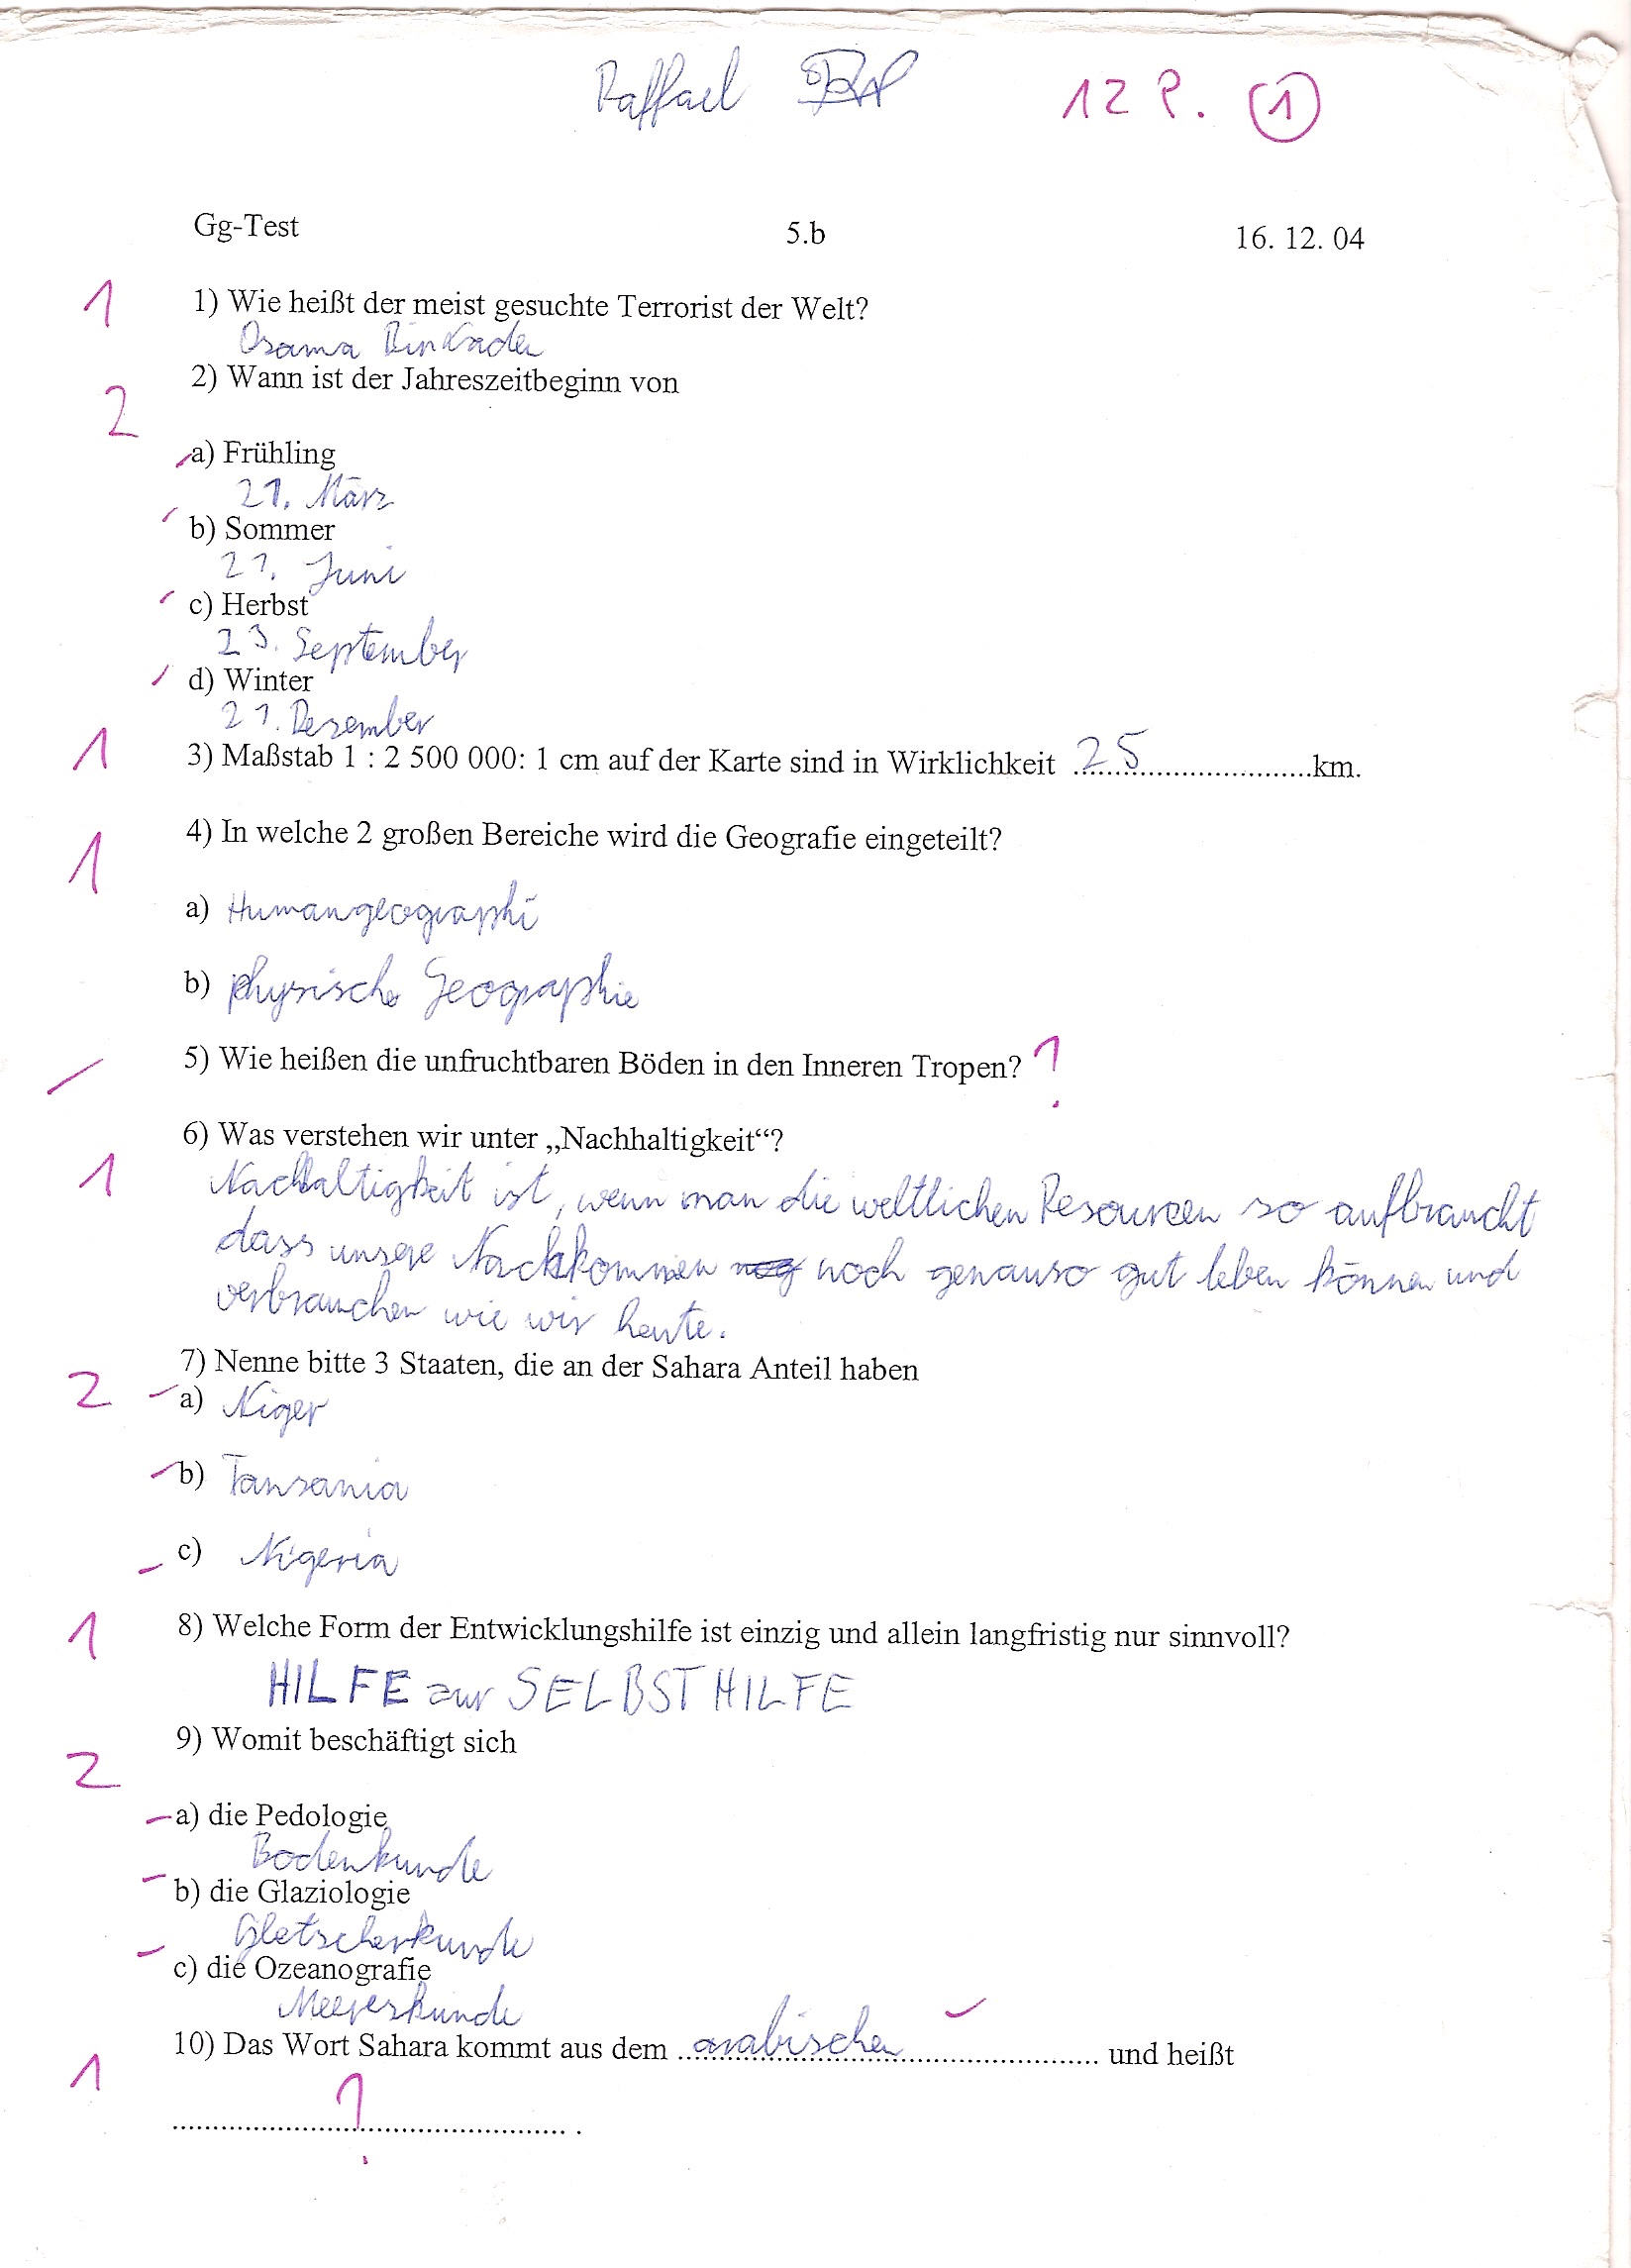 Raffael
12 P. 1
Gg-Test 5.b 16. 12. 04
1 1) Wie heißt der meist gesuchte Terrorist der Welt?
Osama Bin Laden
2) Wann ist der Jahreszeitbeginn von
2
a) Frühling
21. März
b) Sommer
21. Juni
c) Herbst
23. September
d) Winter
21. Dezember
1 3) Maßstab 1 : 2 500 000: 1 cm auf der Karte sind in Wirklichkeit 25 km.
1 4) In welche 2 großen Bereiche wird die Geografie eingeteilt?
a) Humangeographi
b) physische Geographie
5) Wie heißen die unfruchtbaren Böden in den Inneren Tropen? ?
6) Was verstehen wir unter „Nachhaltigkeit“?
1 Nachhaltigkeit ist, wenn man die weltlichen Resourcen so aufbraucht
dass unsere Nachkommen noch genauso gut leben können und
verbrauchen wie wir heute.
7) Nenne bitte 3 Staaten, die an der Sahara Anteil haben
2 a) Niger
b) Tansania
c) Nigeria
1 8) Welche Form der Entwicklungshilfe ist einzig und allein langfristig nur sinnvoll?
HILFE zur SELBSTHILFE
9) Womit beschäftigt sich
2
a) die Pedologie
Bodenkunde
b) die Glaziologie
Gletscherkunde
c) die Ozeanografie
Meereskunde
10) Das Wort Sahara kommt aus dem arabischen und heißt
1
? .